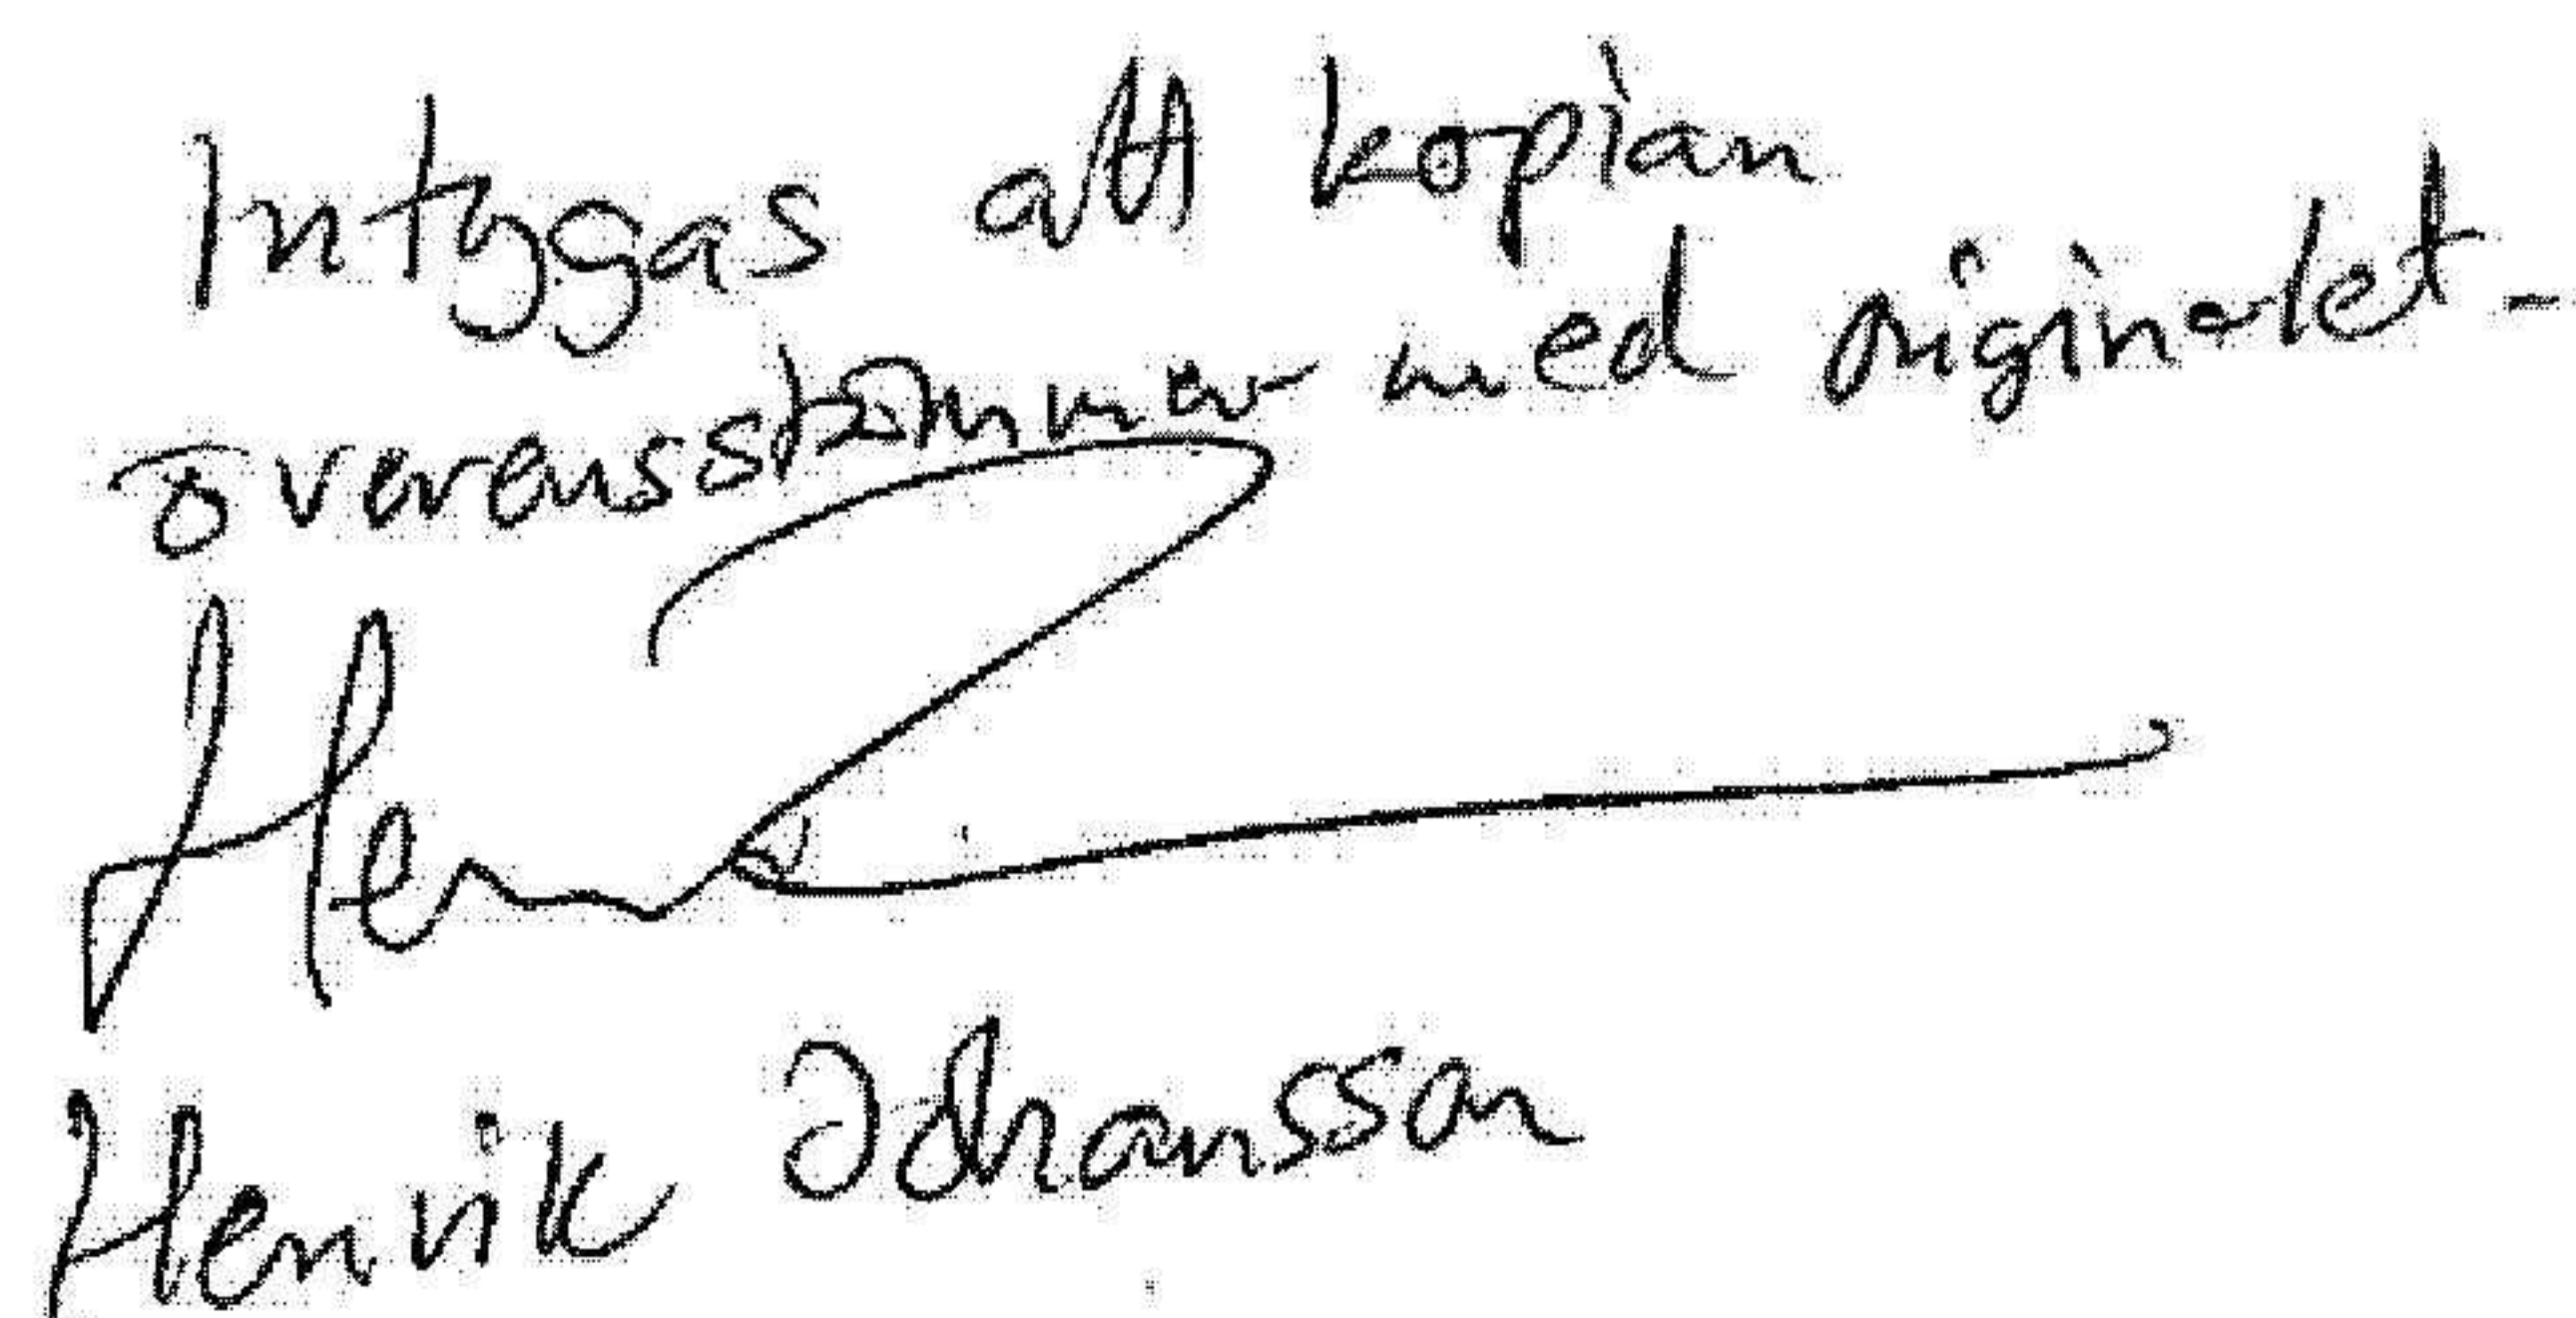 Intygas att kopian
överensstämmer med originalet -
Henrik Johansson